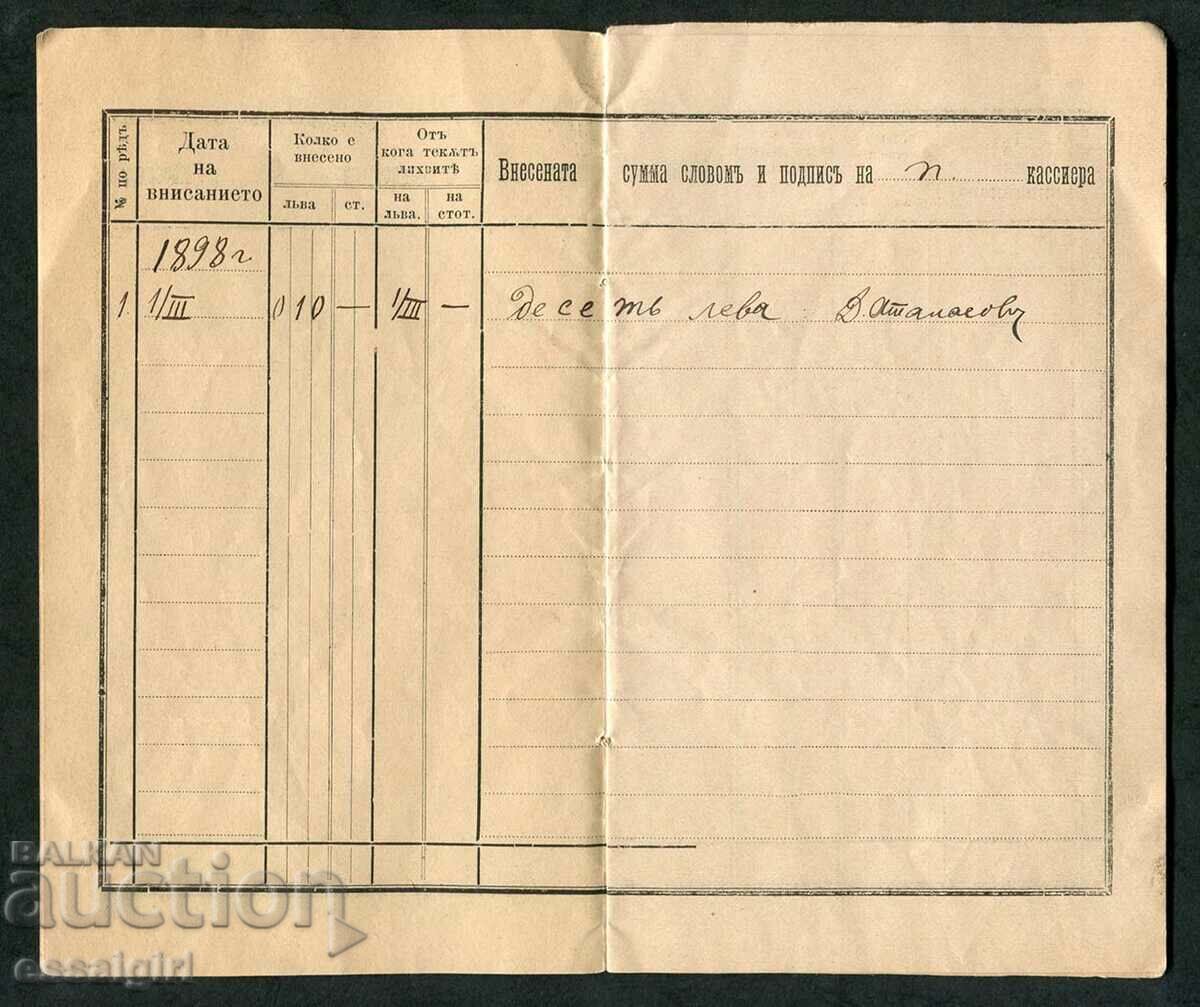 № по рѣдъ.
Дата
на
внисанието
Колко е
внесено
льва
ст.
Отъ
кога текѫтъ
лихвитѣ
на
льва.
на
стот.
Внесената сумма словомъ и подпись на п. кассиера
1898 г
1. 1/III 010 — 1/III — Десеть лева В. Атанасовъ
BALKAN
auction
essaigirl